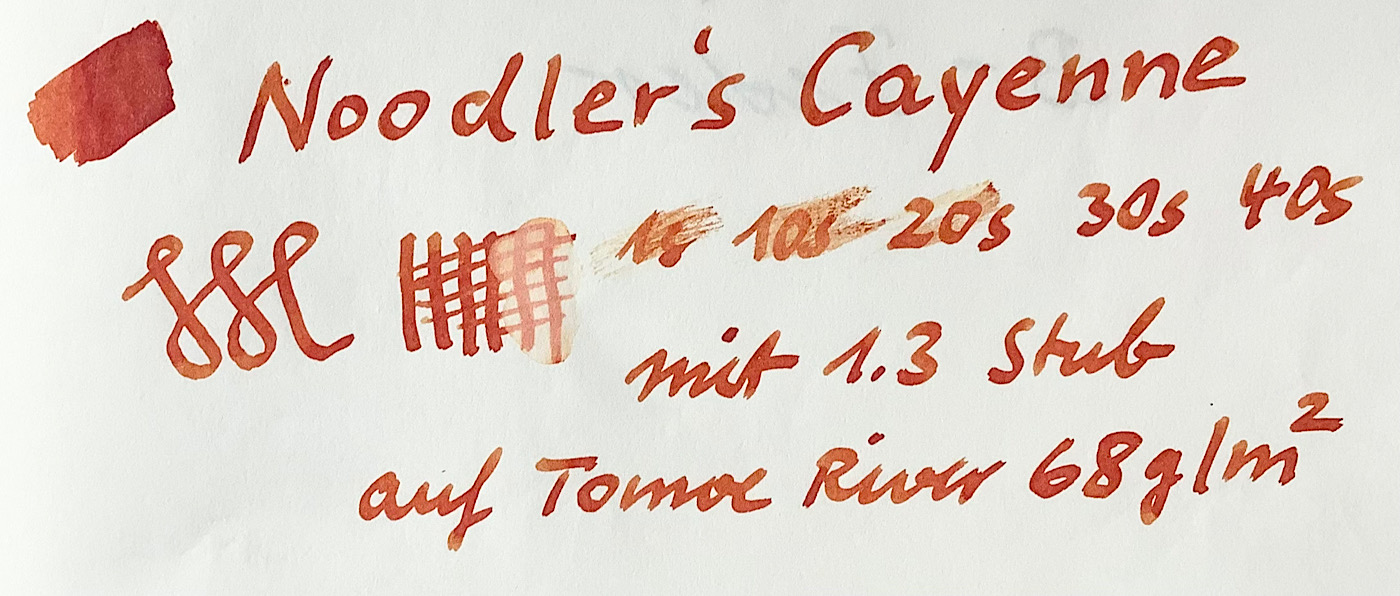 Noodler's Cayenne
1s 10s 20s 30s 40s
mit 1.3 Stub
auf Tomoe River 68g/m²